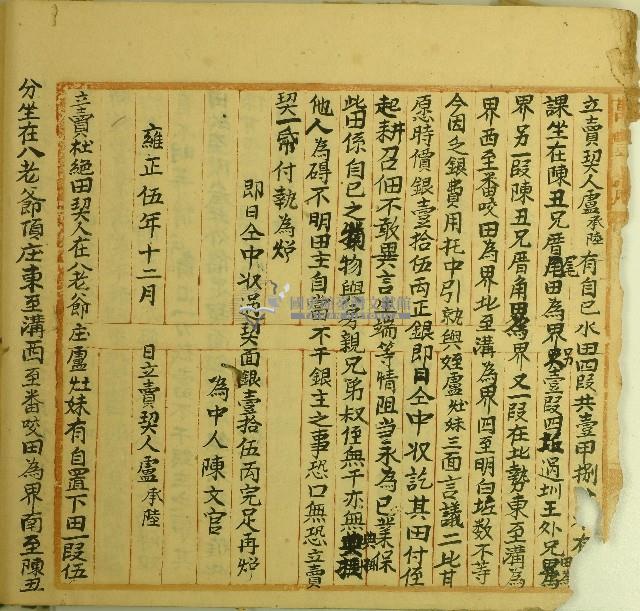 立賣契人盧承陸有自己水田四段共壹甲捌
課坐在陳丑兄厝尾田為界另壹段四坵過圳王外兄田為
界另一段陳丑兄厝角為界又一段在北勢東至溝為
界西至番咬田為界北至溝為界四至明白坵数不等
今因乏銀費用托中引就與姪盧灶妹三面言議二比甘
愿時價銀壹拾伍両正銀即日仝中收訖其田付侄
起耕召佃不敢異言端等情阻当永為己業保
此田係自己之物與房親兄弟叔侄無干亦無典掛
他人為碍不明田主自當不干銀主之事恐口無恐立賣
契一帋付執為炤
即日仝中收過契面銀壹拾伍両完足再炤
為中人陳文官
雍正伍年十二月 日立賣契人盧承陸
立賣杜絕田契人在八老爺庄盧灶妹有自置下田一段伍
分坐在八老爺頂庄東至溝西至番咬田為界南至陳丑